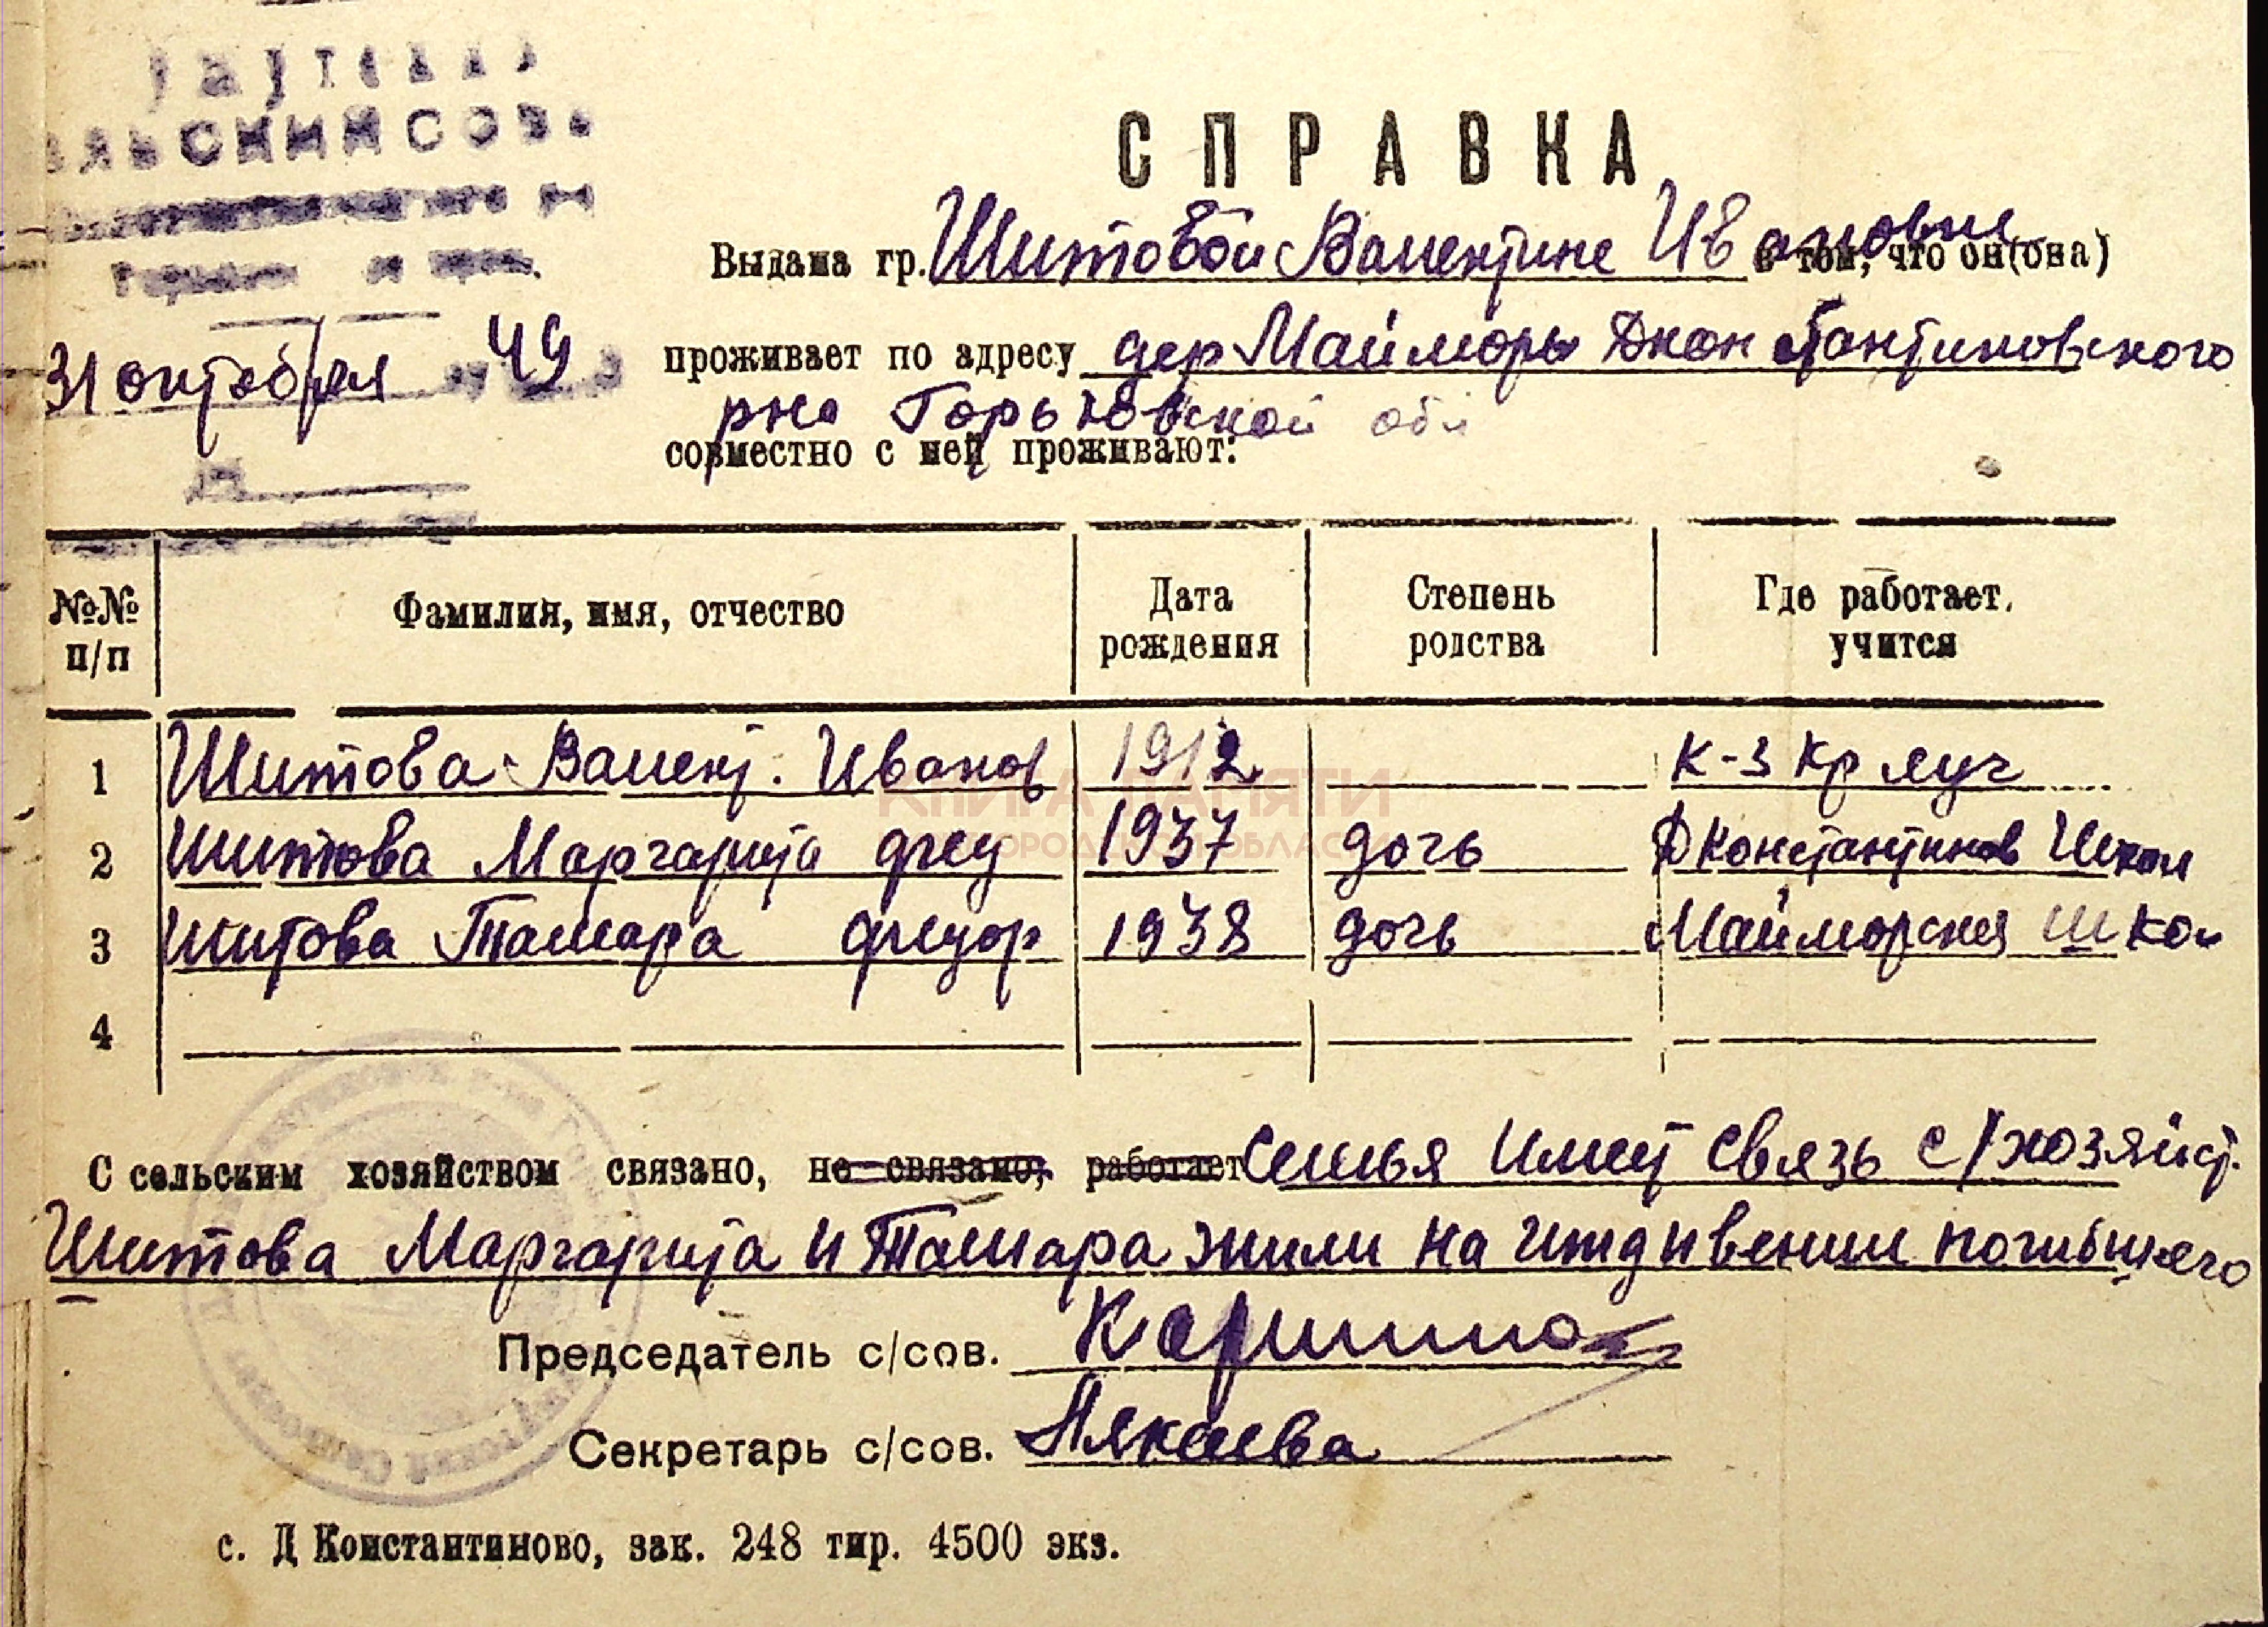 СПРАВКА
Выдана гр. Шитовой Валентине Ивановне в том, что он(она)
31 октября 49
проживает по адресу дер Майморы Дконстантиновского
рна Горьковской обл
совместно с ней проживают:
№№ п/п Фамилия, имя, отчество Дата рождения Степень родства Где работает, учится
1 Шитова Валент. Иванов 1912 К-з Кр луч
2 Шитова Маргарита Фед 1937 дочь ДКонстантинов Школ
3 Шитова Тамара Федор 1938 дочь Майморская Школ
4
КНИГА ПАМЯТИ
С сельским хозяйством связано, не связано, работает Семья имеет связь с/хозяйст.
Шитова Маргарита и Тамара жили на иждивении погибшего
Председатель с/сов.
Секретарь с/сов.
с. Д Константиново, зак. 248 тир. 4500 экз.